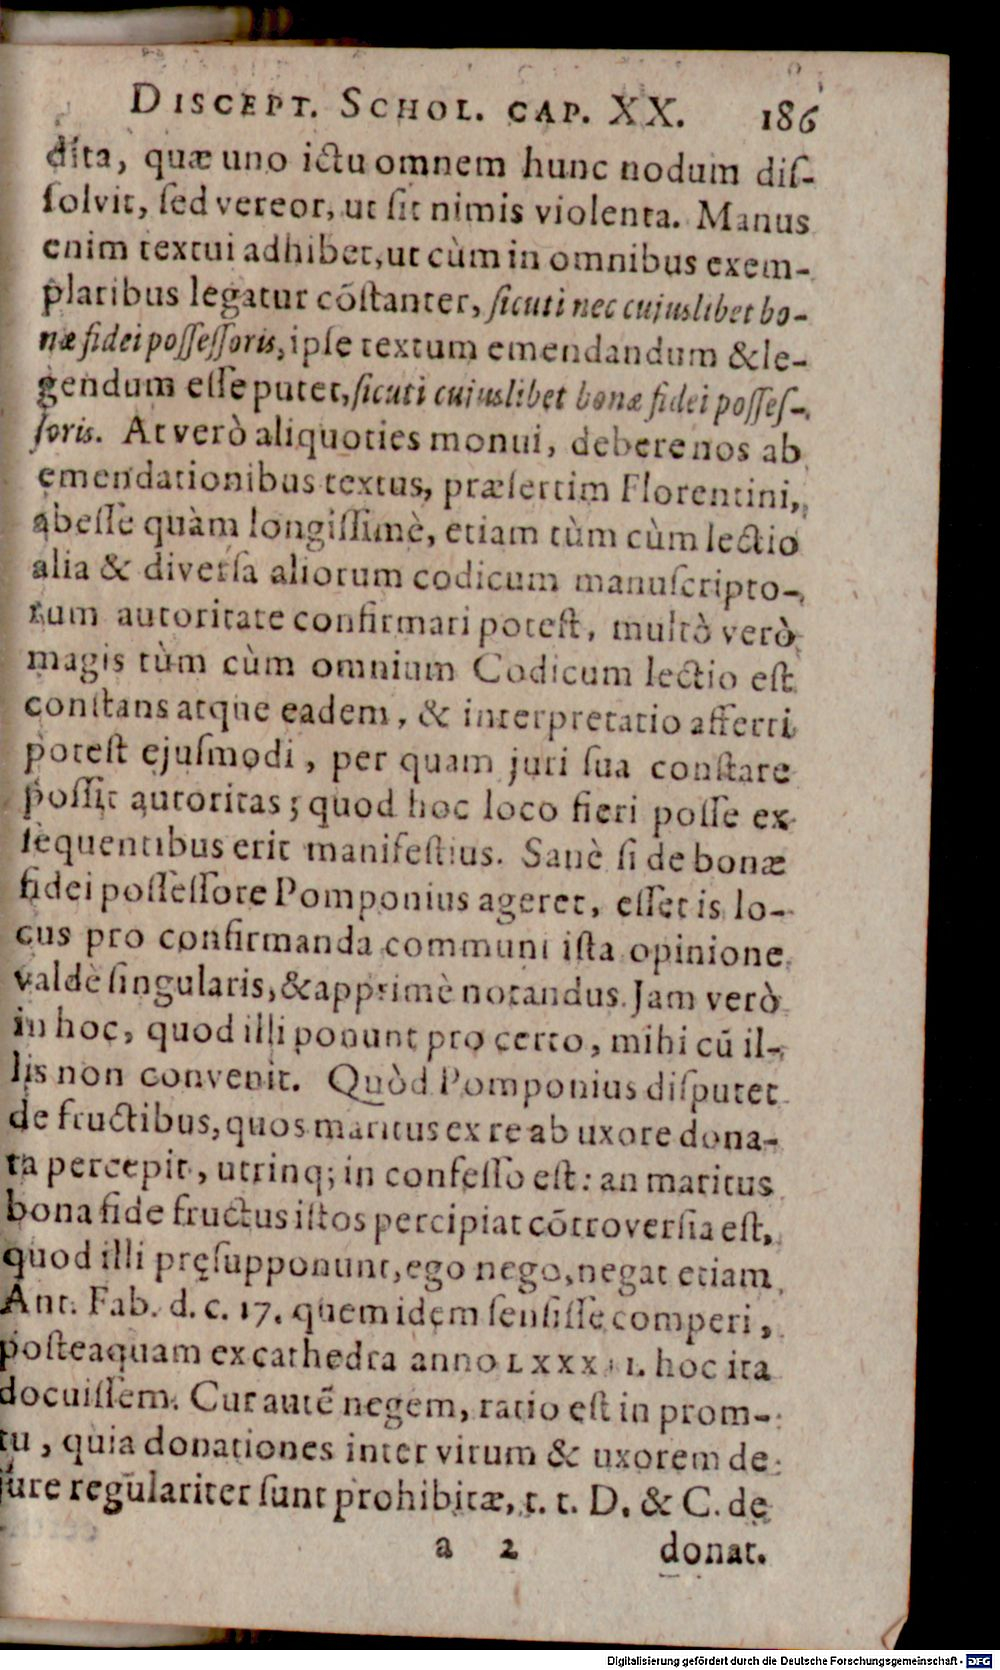 DISCEPT. SCHOL. CAP. XX. 186
dita, quæ uno ictu omnem hunc nodum dis-
solvit, sed vereor, ut sit nimis violenta. Manus
enim textui adhibet, ut cùm in omnibus exem-
plaribus legatur cõstanter, sicuti nec cujuslibet bo-
næ fidei possessoris, ipse textum emendandum & le-
gendum esse putet, sicuti cujuslibet bonæ fidei posses-
soris. At verò aliquoties monui, debere nos ab
emendationibus textus, præsertim Florentini,
abesse quàm longissimè, etiam tùm cùm lectio
alia & diversa aliorum codicum manuscripto-
rum autoritate confirmari potest, multò verò
magis tùm cùm omnium Codicum lectio est
constans atque eadem, & interpretatio afferri
potest ejusmodi, per quam juri sua constare
possit autoritas; quod hoc loco fieri posse ex
sequentibus erit manifestius. Sanè si de bonæ
fidei possessore Pomponius ageret, esset is lo-
cus pro confirmanda communi ista opinione
valdè singularis, & apprimè notandus. Jam verò
in hoc, quod illi ponunt pro certo, mihi cũ il-
lis non convenit. Quòd Pomponius disputet
de fructibus, quos maritus ex re ab uxore dona-
ta percepit, utrinq; in confesso est: an maritus
bona fide fructus istos percipiat cõtroversia est,
quod illi pręsupponunt, ego nego, negat etiam
Ant. Fab. d. c. 17. quem idem sensisse comperi,
posteaquam ex cathedra anno hoc ita
docuissem. Cur autẽ negem, ratio est in prom-
tu, quia donationes inter virum & uxorem de
jure regulariter sunt prohibitæ, t. t. D. & C. de
a 2 donat.
Digitalisierung gefördert durch die Deutsche Forschungsgemeinschaft - DFG